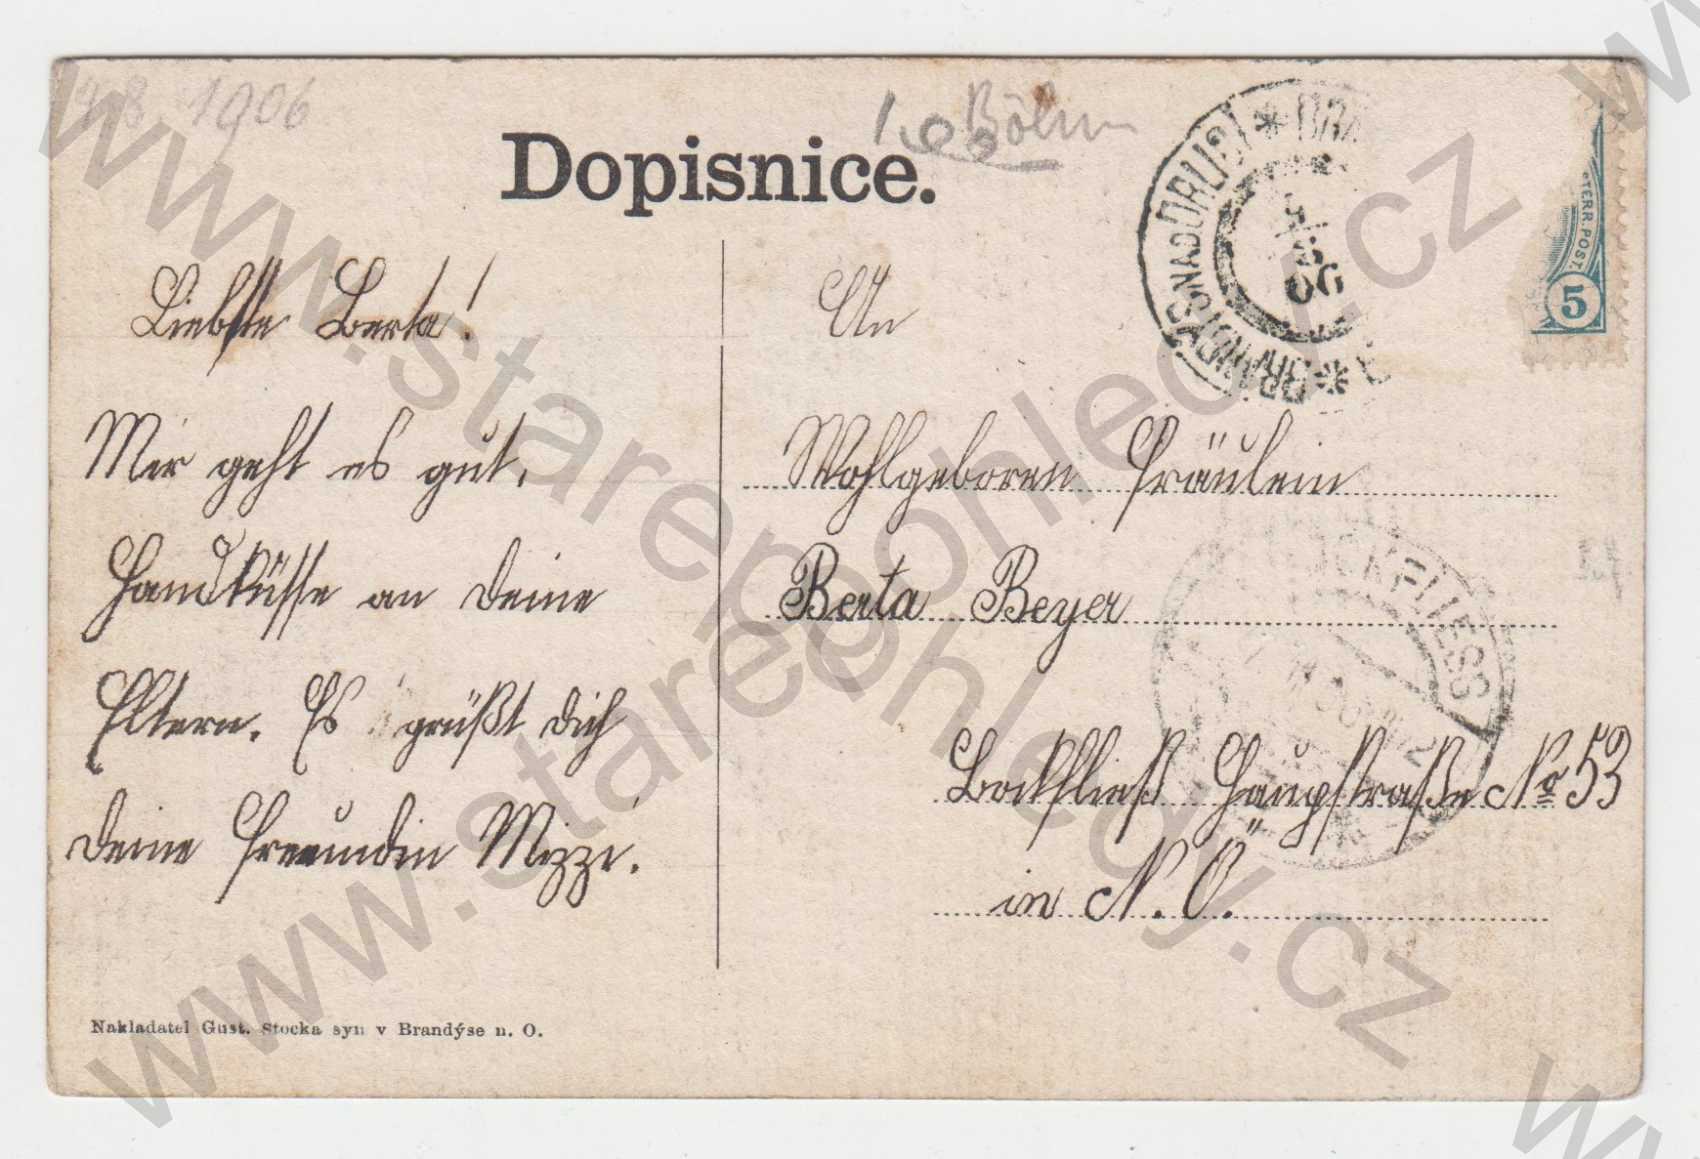 1906
Böhm
Dopisnice.
Liebste Berta!
Mir geht es gut.
Handküsse an deine
Eltern. Es grüßt dich
deine Freundin Mizzi.
Nakladatel Gust. Stocka syn v Brandýse n. O.
BRANDÝS NAD ORLICÍ
06
TERR. POST.
5
An
Wohlgeboren Fräulein
Berta Beyer
Bockfließ Hauptstraße No 53
in N. Ö.
BOCKFLIESS
www.starepohledy.cz
www.starepohledy.cz